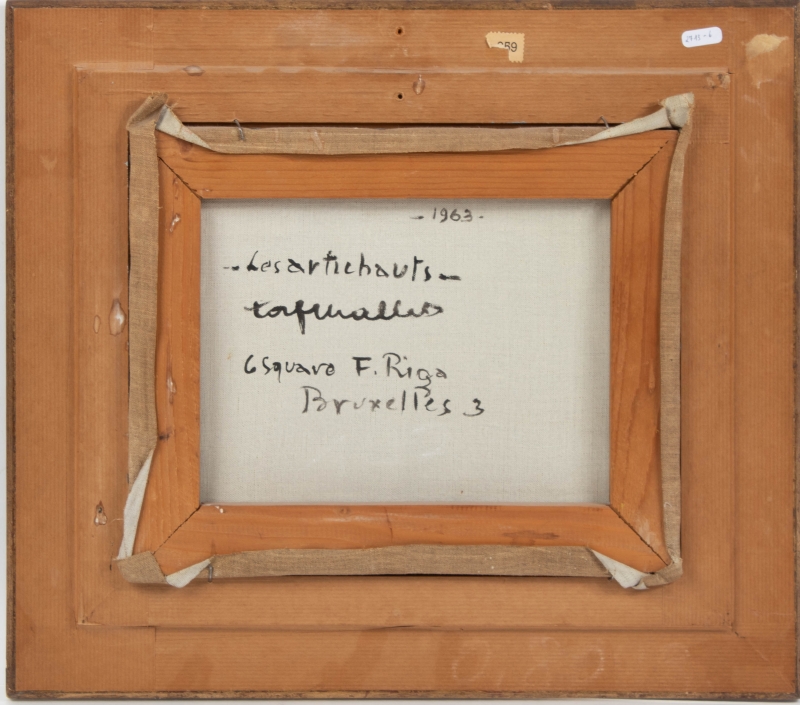 259
2915-6
- 1963 -
- Les artichauts -
6 Square F. Riga
Bruxelles 3